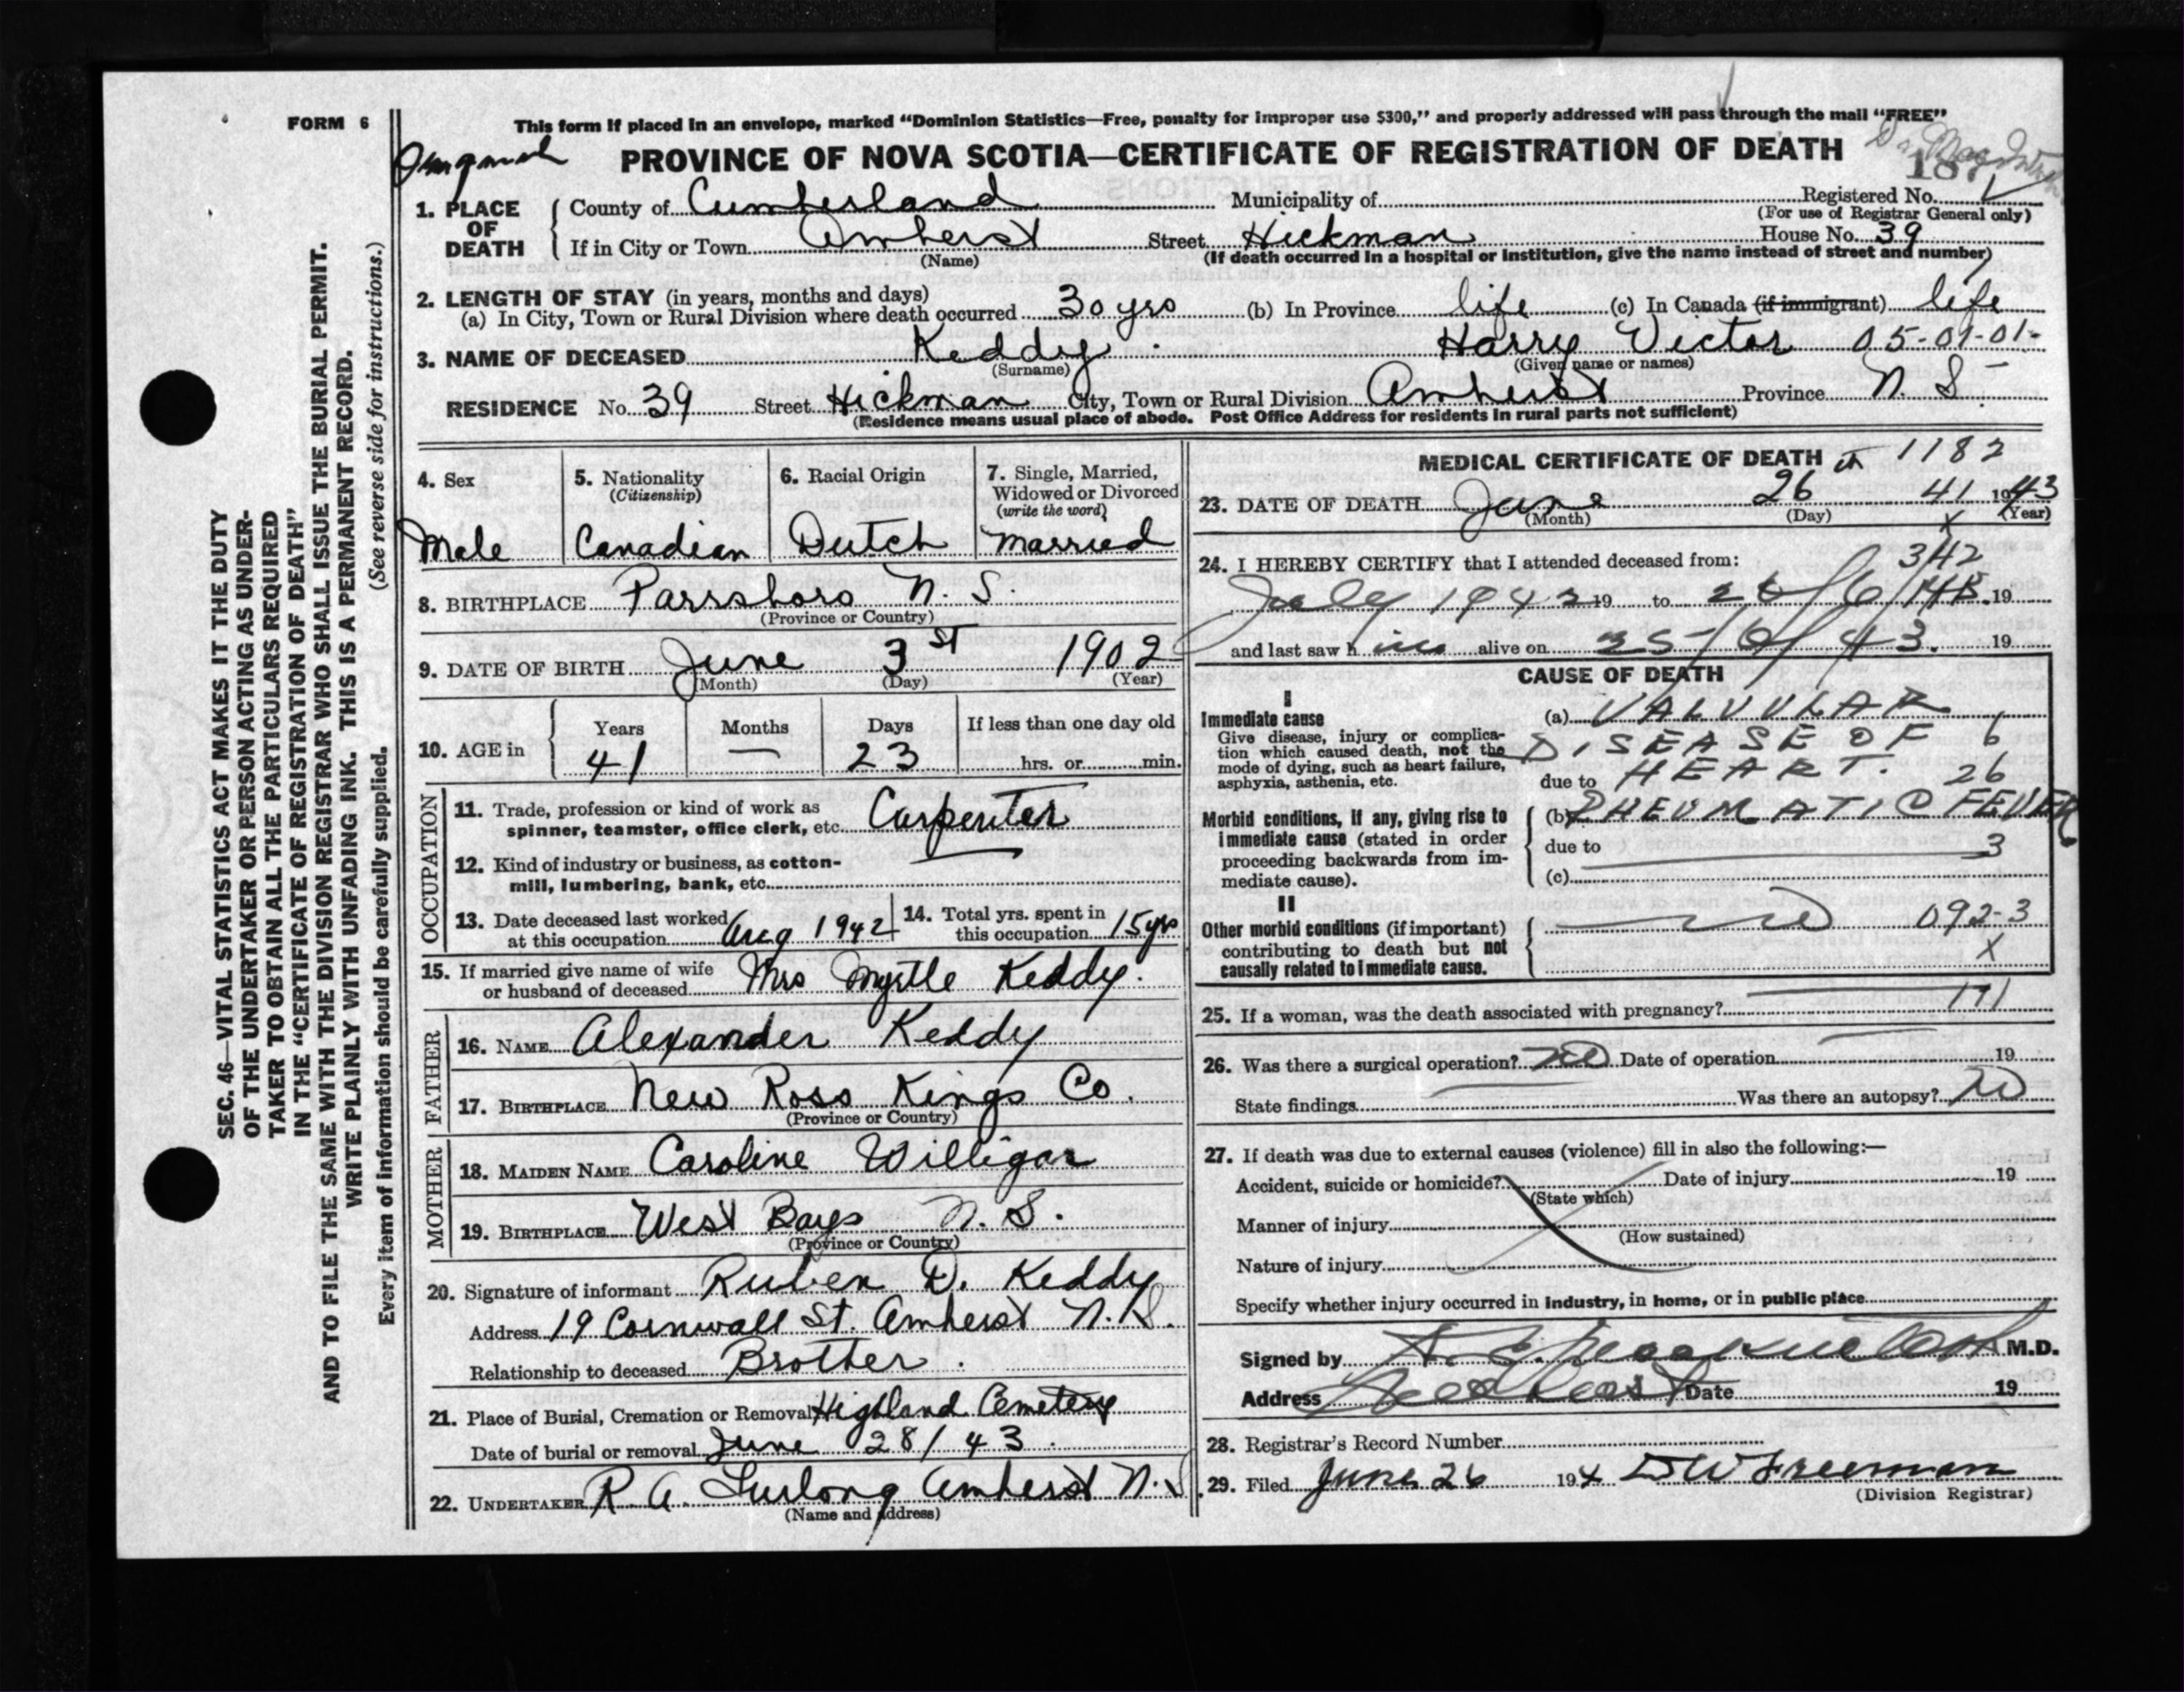 FORM 6
This form if placed in an envelope, marked “Dominion Statistics—Free, penalty for improper use $300,” and properly addressed will pass through the mail “FREE”
PROVINCE OF NOVA SCOTIA—CERTIFICATE OF REGISTRATION OF DEATH
187
1. PLACE OF DEATH
County of Cumberland Municipality of Registered No.
(For use of Registrar General only)
If in City or Town Amherst Street Hickman House No. 39
(Name) (If death occurred in a hospital or institution, give the name instead of street and number)
2. LENGTH OF STAY (in years, months and days)
(a) In City, Town or Rural Division where death occurred 30 yrs (b) In Province life (c) In Canada (if immigrant) life
3. NAME OF DECEASED Keddy Harry Victor 05-01-01-
(Surname) (Given name or names)
RESIDENCE No. 39 Street Hickman City, Town or Rural Division Amherst Province N. S.
(Residence means usual place of abode. Post Office Address for residents in rural parts not sufficient)
SEC. 46—VITAL STATISTICS ACT MAKES IT THE DUTY
OF THE UNDERTAKER OR PERSON ACTING AS UNDER-
TAKER TO OBTAIN ALL THE PARTICULARS REQUIRED
IN THE “CERTIFICATE OF REGISTRATION OF DEATH”
AND TO FILE THE SAME WITH THE DIVISION REGISTRAR WHO SHALL ISSUE THE BURIAL PERMIT.
WRITE PLAINLY WITH UNFADING INK. THIS IS A PERMANENT RECORD.
Every item of information should be carefully supplied. (See reverse side for instructions.)
4. Sex 5. Nationality (Citizenship) 6. Racial Origin 7. Single, Married, Widowed or Divorced (write the word)
Male Canadian Dutch Married
8. BIRTHPLACE Parrsboro N. S.
(Province or Country)
9. DATE OF BIRTH June 3 ST 1902
(Month) (Day) (Year)
10. AGE in Years Months Days If less than one day old
41 — 23 hrs. or min.
OCCUPATION
11. Trade, profession or kind of work as
spinner, teamster, office clerk, etc. Carpenter
12. Kind of industry or business, as cotton-
mill, lumbering, bank, etc.
13. Date deceased last worked at this occupation Aug 1942
14. Total yrs. spent in this occupation 15 yrs
15. If married give name of wife or husband of deceased Mrs Myrtle Keddy.
FATHER
16. NAME Alexander Keddy
17. BIRTHPLACE New Ross Kings Co.
(Province or Country)
MOTHER
18. MAIDEN NAME Caroline Willigar
19. BIRTHPLACE West Bays N. S.
(Province or Country)
20. Signature of informant Ruben D. Keddy
Address 19 Cornwall St. Amherst N. S.
Relationship to deceased Brother.
21. Place of Burial, Cremation or Removal Highland Cemetery
Date of burial or removal June 28/43.
22. UNDERTAKER R. A. Furlong Amherst N. S
(Name and address)
MEDICAL CERTIFICATE OF DEATH 1182
23. DATE OF DEATH June 26 41 1943
(Month) (Day) (Year)
X
24. I HEREBY CERTIFY that I attended deceased from: 342
July 1942 19 to 26/6/43. 19
and last saw him alive on 25/6/43. 19
CAUSE OF DEATH
I
Immediate cause
Give disease, injury or complica-
tion which caused death, not the
mode of dying, such as heart failure,
asphyxia, asthenia, etc.
(a) VALVULAR
DISEASE OF 6
due to HEART. 26
Morbid conditions, if any, giving rise to
immediate cause (stated in order
proceeding backwards from im-
mediate cause).
(b) RHEUMATIC FEVER
due to 3
(c)
II
Other morbid conditions (if important)
contributing to death but not
causally related to immediate cause.
no 092-3
X
25. If a woman, was the death associated with pregnancy? 171
26. Was there a surgical operation? no Date of operation 19
State findings Was there an autopsy? no
27. If death was due to external causes (violence) fill in also the following:—
Accident, suicide or homicide? Date of injury 19
(State which)
Manner of injury
(How sustained)
Nature of injury
Specify whether injury occurred in industry, in home, or in public place
Signed by M.D.
Address Amherst Date 19
28. Registrar’s Record Number
29. Filed June 26 194 D W Freeman
(Division Registrar)